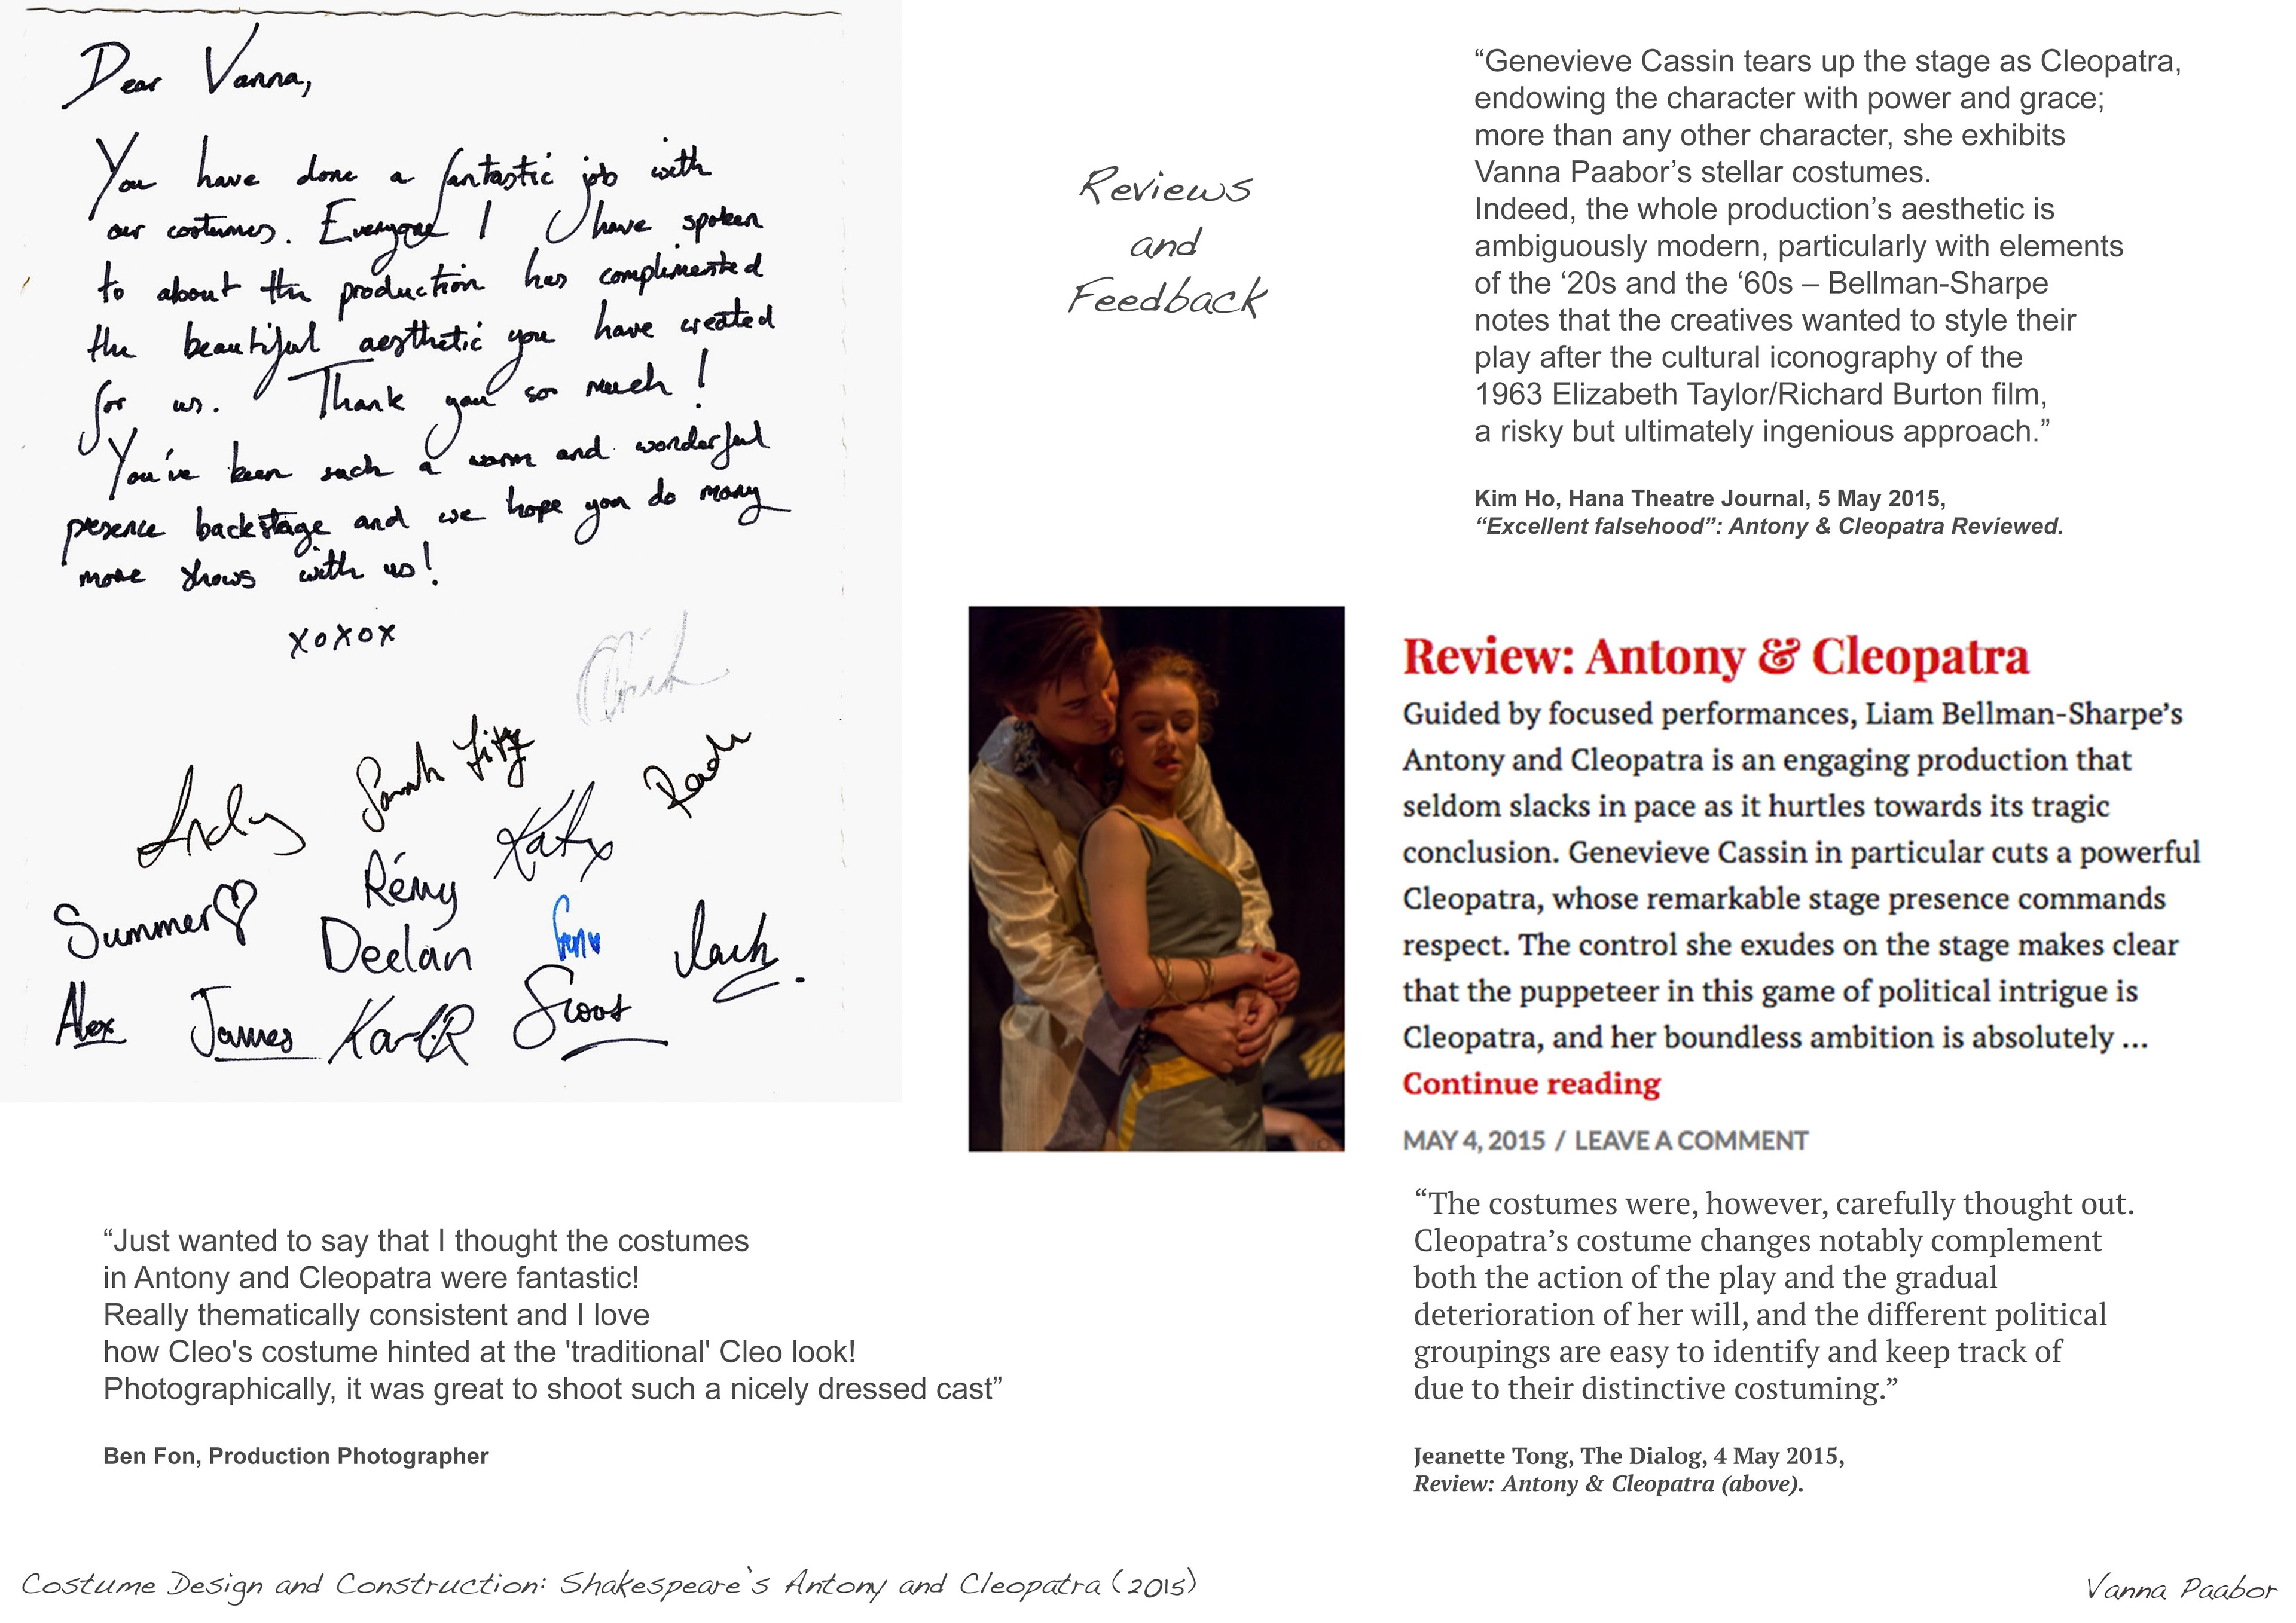 Dear Vanna,
You have done a fantastic job with
our costumes. Everyone I have spoken
to about the production has complimented
the beautiful aesthetic you have created
for us. Thank you so much!
You've been such a warm and wonderful
presence backstage and we hope you do many
more shows with us!
xoxox
Sarah Fitz
Katy
Rémy
Summer♡
Declan
Alex
James
Karl R
Scout
Reviews
and
Feedback
“Genevieve Cassin tears up the stage as Cleopatra,
endowing the character with power and grace;
more than any other character, she exhibits
Vanna Paabor’s stellar costumes.
Indeed, the whole production’s aesthetic is
ambiguously modern, particularly with elements
of the ‘20s and the ‘60s – Bellman-Sharpe
notes that the creatives wanted to style their
play after the cultural iconography of the
1963 Elizabeth Taylor/Richard Burton film,
a risky but ultimately ingenious approach.”
Kim Ho, Hana Theatre Journal, 5 May 2015,
“Excellent falsehood”: Antony & Cleopatra Reviewed.
Review: Antony & Cleopatra
Guided by focused performances, Liam Bellman-Sharpe’s
Antony and Cleopatra is an engaging production that
seldom slacks in pace as it hurtles towards its tragic
conclusion. Genevieve Cassin in particular cuts a powerful
Cleopatra, whose remarkable stage presence commands
respect. The control she exudes on the stage makes clear
that the puppeteer in this game of political intrigue is
Cleopatra, and her boundless ambition is absolutely ...
Continue reading
MAY 4, 2015 / LEAVE A COMMENT
“Just wanted to say that I thought the costumes
in Antony and Cleopatra were fantastic!
Really thematically consistent and I love
how Cleo's costume hinted at the 'traditional' Cleo look!
Photographically, it was great to shoot such a nicely dressed cast”
Ben Fon, Production Photographer
“The costumes were, however, carefully thought out.
Cleopatra’s costume changes notably complement
both the action of the play and the gradual
deterioration of her will, and the different political
groupings are easy to identify and keep track of
due to their distinctive costuming.”
Jeanette Tong, The Dialog, 4 May 2015,
Review: Antony & Cleopatra (above).
Costume Design and Construction: Shakespeare's Antony and Cleopatra (2015)
Vanna Paabor